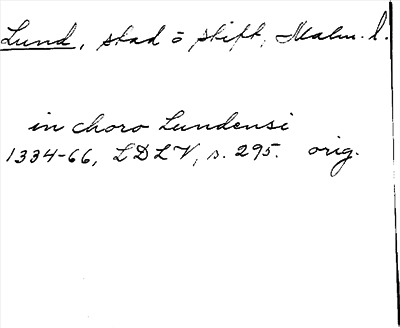 Lund, stad o stift, Malm. l.
in choro Lundensi
1334-66, LDLV, s. 295. orig.